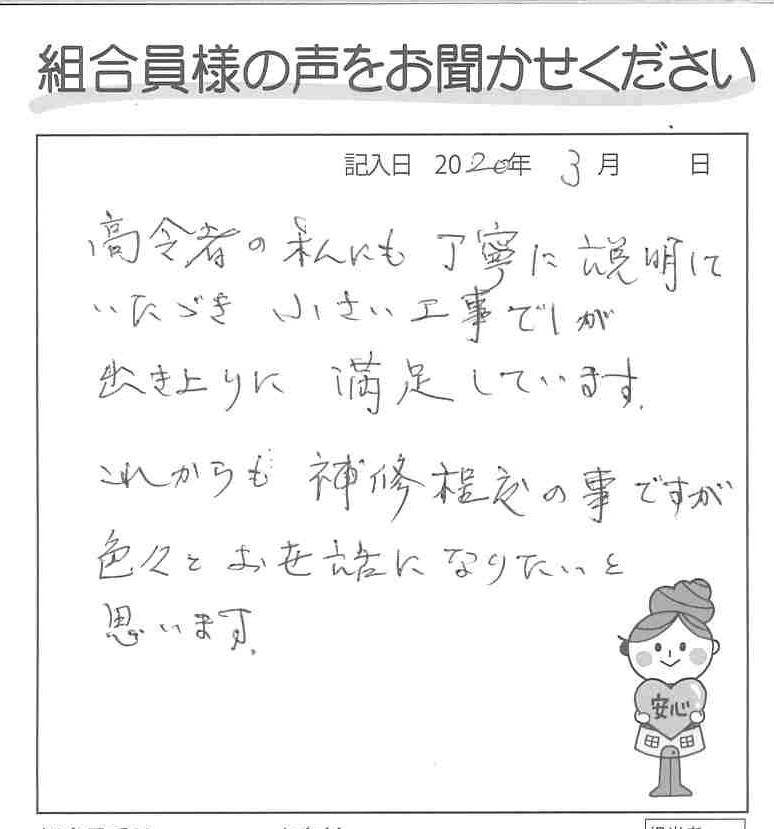 組合員様の声をお聞かせください
記入日 2020年 3月 日
高令者の私にも 丁寧に 説明して
いただき 小さい 工事でしが
出き上りに 満足しています。
これからも 補修程度の事ですが
色々と お世話に なりたいと
思います。
安心